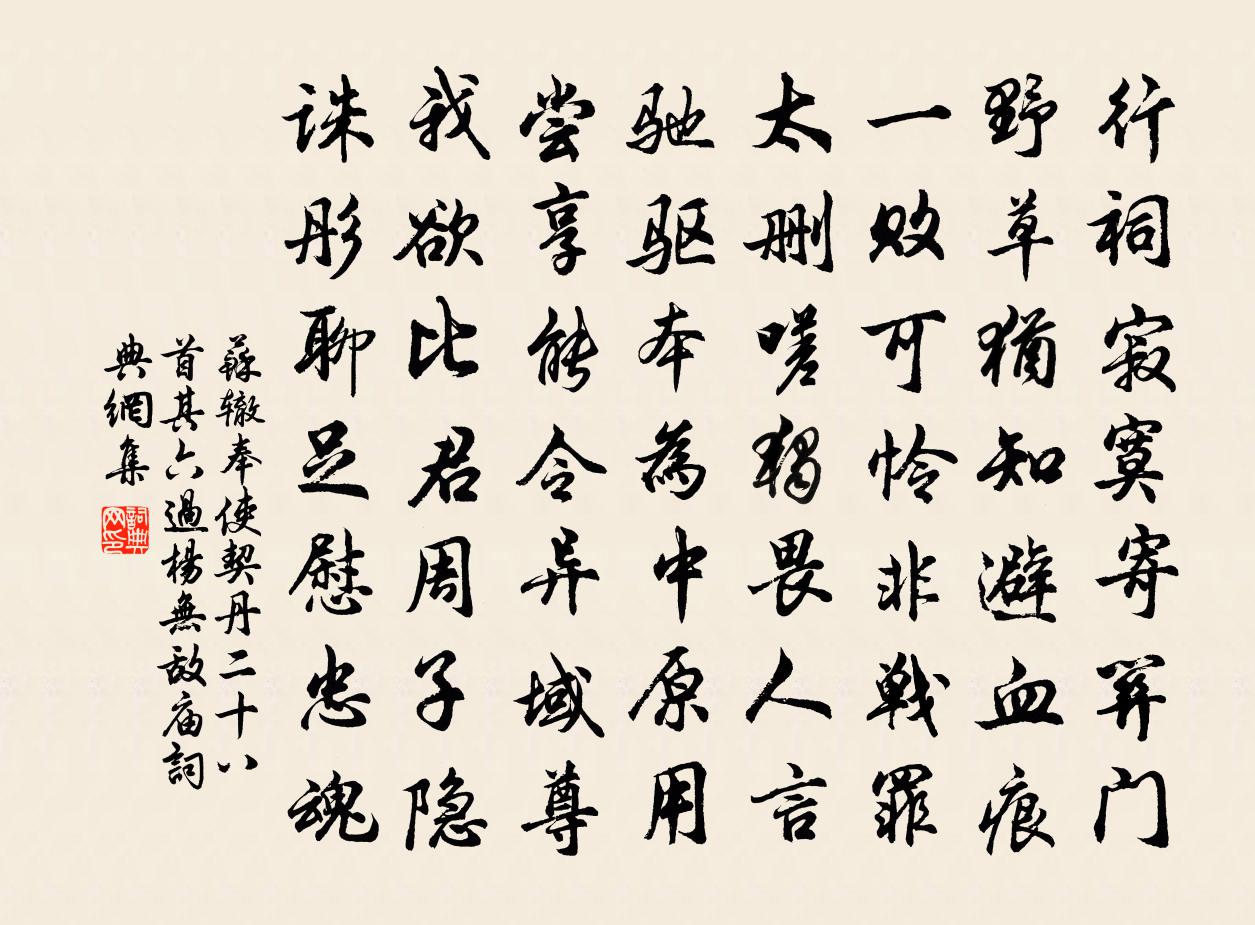 行祠寂寞寄关门
野草猶知避血痕
一败可怜非戰罪
太刚嗟獨畏人言
驰驱本為中原用
尝享能令异域尊
我欲比君周子隐
诛彤聊足慰忠魂
蘇辙奉使契丹二十八
首其六過楊無敌庙詞
典網集
詞典
网印